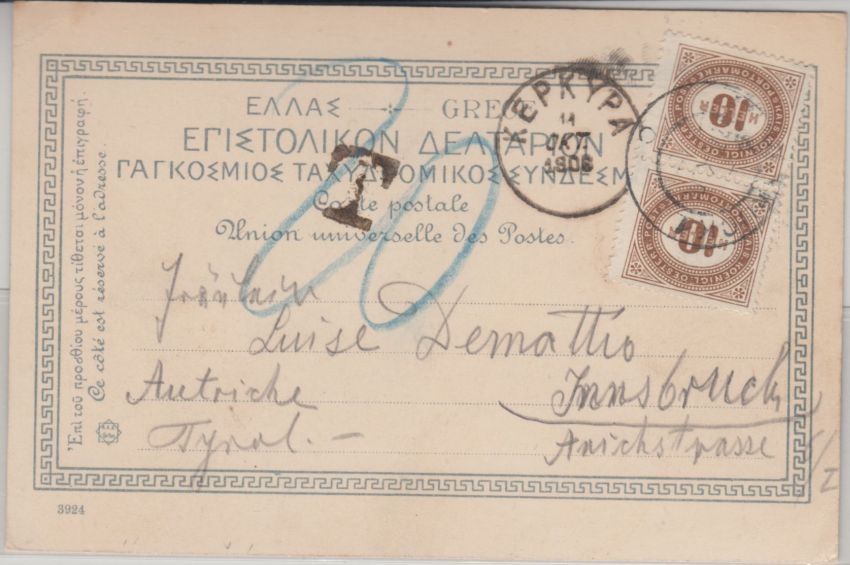 ΕΛΛΑΣ GRECE
ΕΠΙΣΤΟΛΙΚΟΝ ΔΕΛΤΑΡΙΟΝ
ΠΑΓΚΟΣΜΙΟΣ ΤΑΧΥΔΡΟΜΙΚΟΣ ΣΥΝΔΕΣΜ
Carte postale
Union universelle des Postes.
20
T
ΚΕΡΚΥΡΑ
11
ΟΚΤ.
1906
10
10
Fräulein
Luise Demattio
Autriche
Innsbruck
Tyrol. –
Anichstrasse
Ἐπὶ τοῦ προσθίου μέρους τίθεται μόνον ἡ ἐπιγραφή.
Ce côté est réservé à l'adresse.
3924